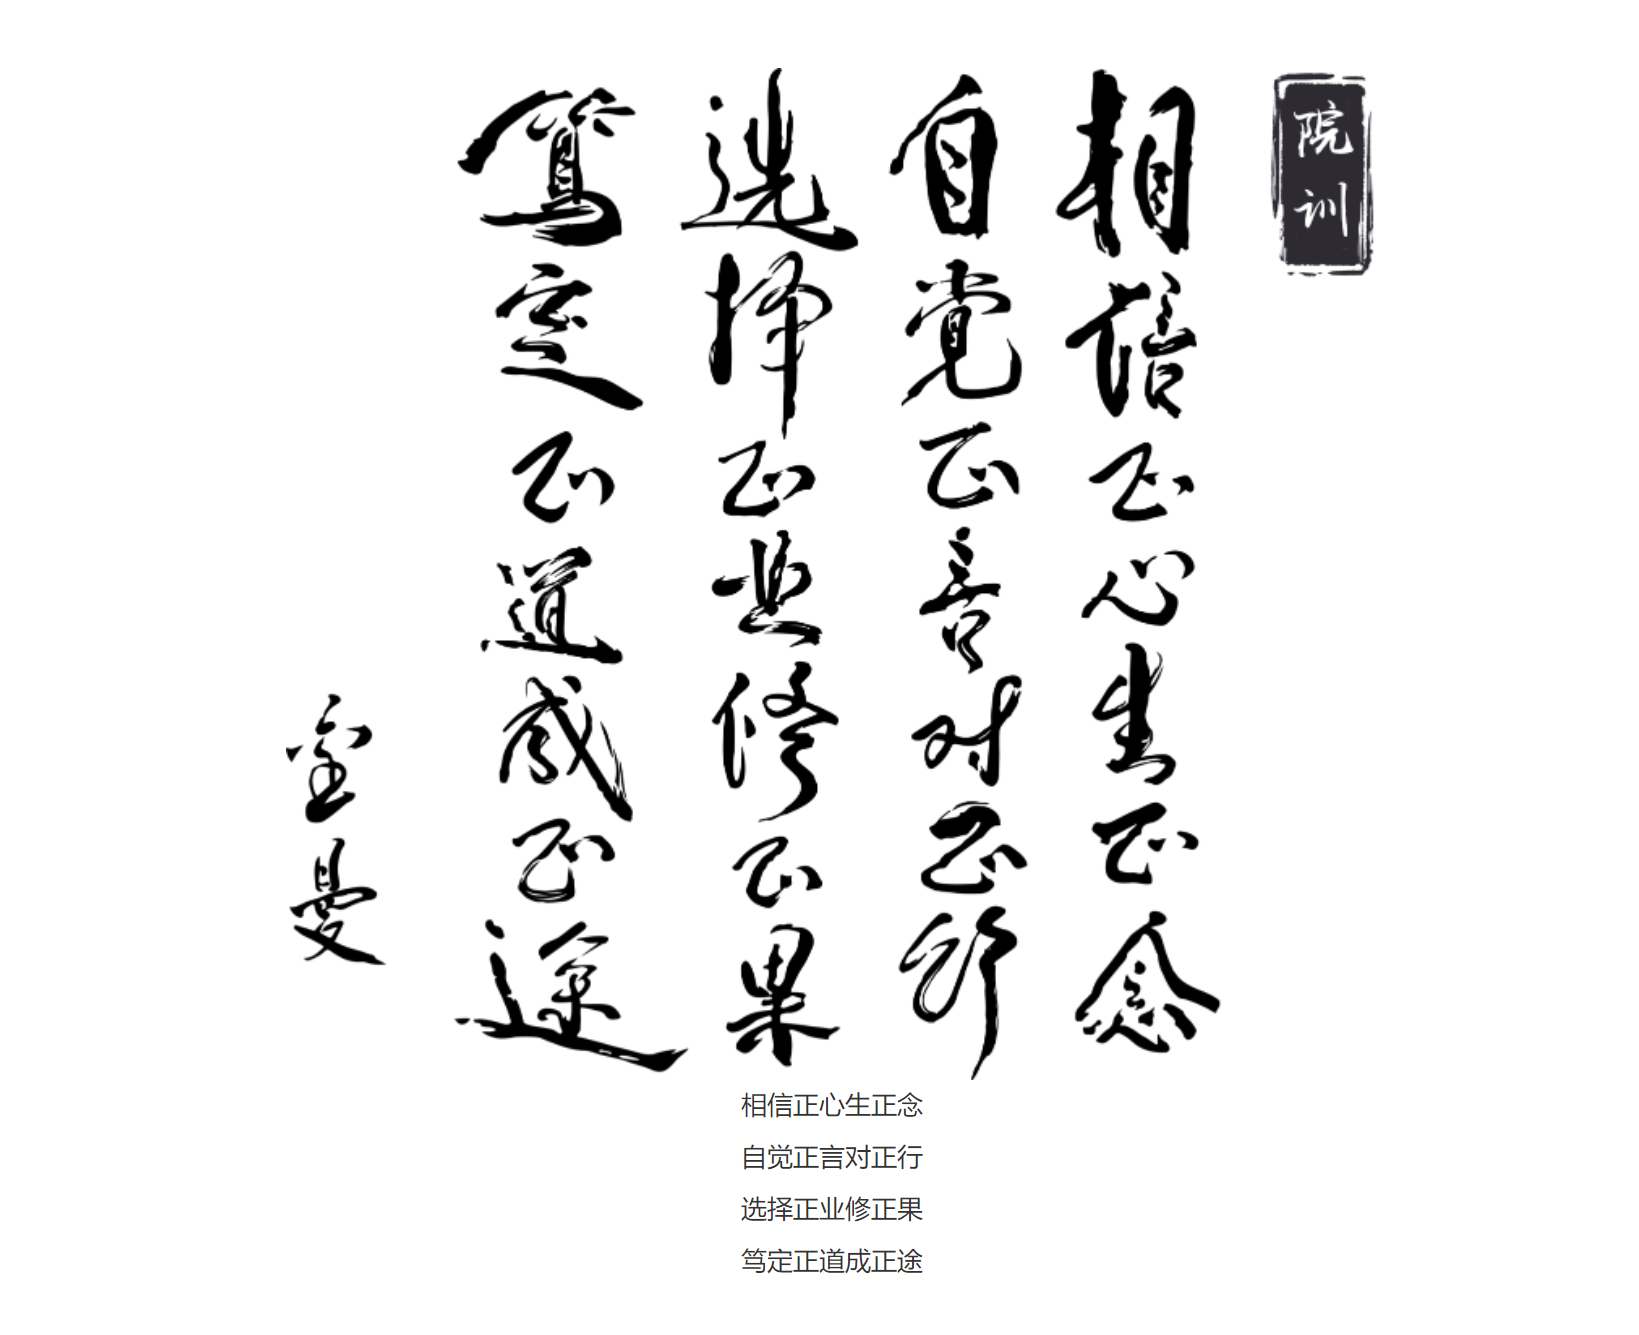 院训
相信正心生正念
自觉正言对正行
选择正业修正果
笃定正道成正途
金曼
相信正心生正念
自觉正言对正行
选择正业修正果
笃定正道成正途